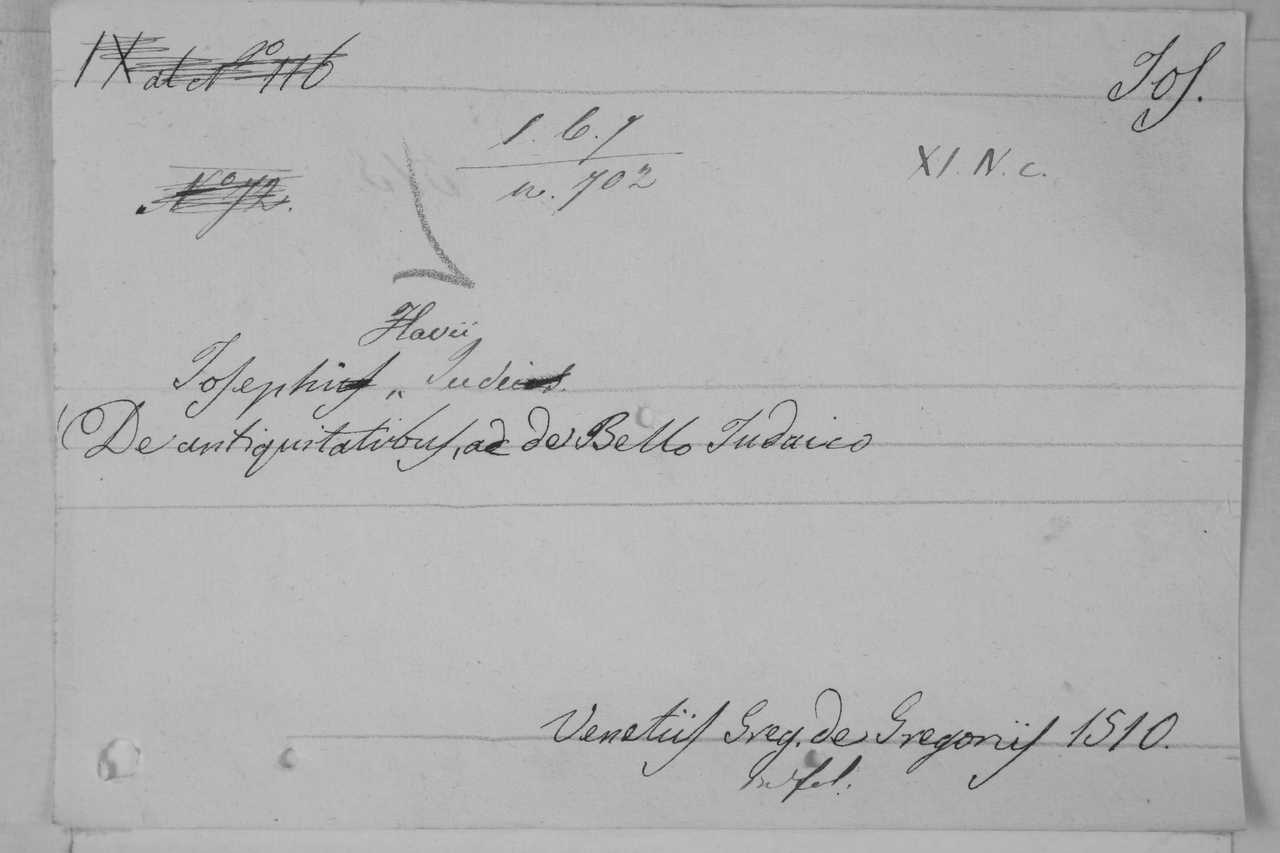 IX at No 116
Jos.
1. b. 7
n. 702
XI. N. c.
No 72.
Flavii
Josephus Judeius.
De antiquitatibus, ac de Bello Judaico
Venetiis Greg. de Gregoriis 1510.
in fol.